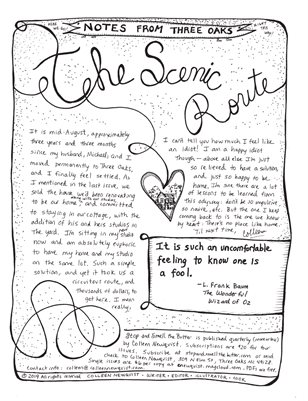 HERE WE GO!
ALONG THE WAY.
NOTES FROM THREE OAKS
The Scenic
Route
It is mid-August, approximately
three years and three months
since my husband, Michael, and I
moved permanently to Three Oaks,
and I finally feel settled. As
I mentioned in the last issue, we
sold the house we'd been renovating
to be our home, and committed
to staying in our cottage, with the
addition of his and hers studios in
the yard. I'm sitting in my studio
now and am absolutely euphoric
to have my home and my studio
on the same lot. Such a simple
solution, and yet it took us a
circuitous route, and
thousands of dollars, to
get here. I mean
really,
I can't tell you how much I feel like
an idiot! I am a happy idiot
though—above all else I'm just
so relieved to have a solution,
and just so happy to be
home. I'm sure there are a lot
of lessons to be learned from
this odyssey: don't be so impulsive,
so naive, etc. But the one I keep
coming back to is the one we know
by heart: There's no place like home.
Til next time, Colleen
It is such an uncomfortable
feeling to know one is
a fool.
-L. Frank Baum
The Wonderful
Wizard of Oz
Stop and Smell the Butter is published quarterly
by Colleen Newquist. Subscriptions are $20 for four
issues. Subscribe at stopandsmellthebutter.com or send
check to Colleen Newquist,
Single issues are $6 per copy at
Contact info: colleen@colleennewquist.com
© 2019 All rights reserved COLLEEN NEWQUIST · WRITER · EDITOR · ILLUSTRATOR · DOER